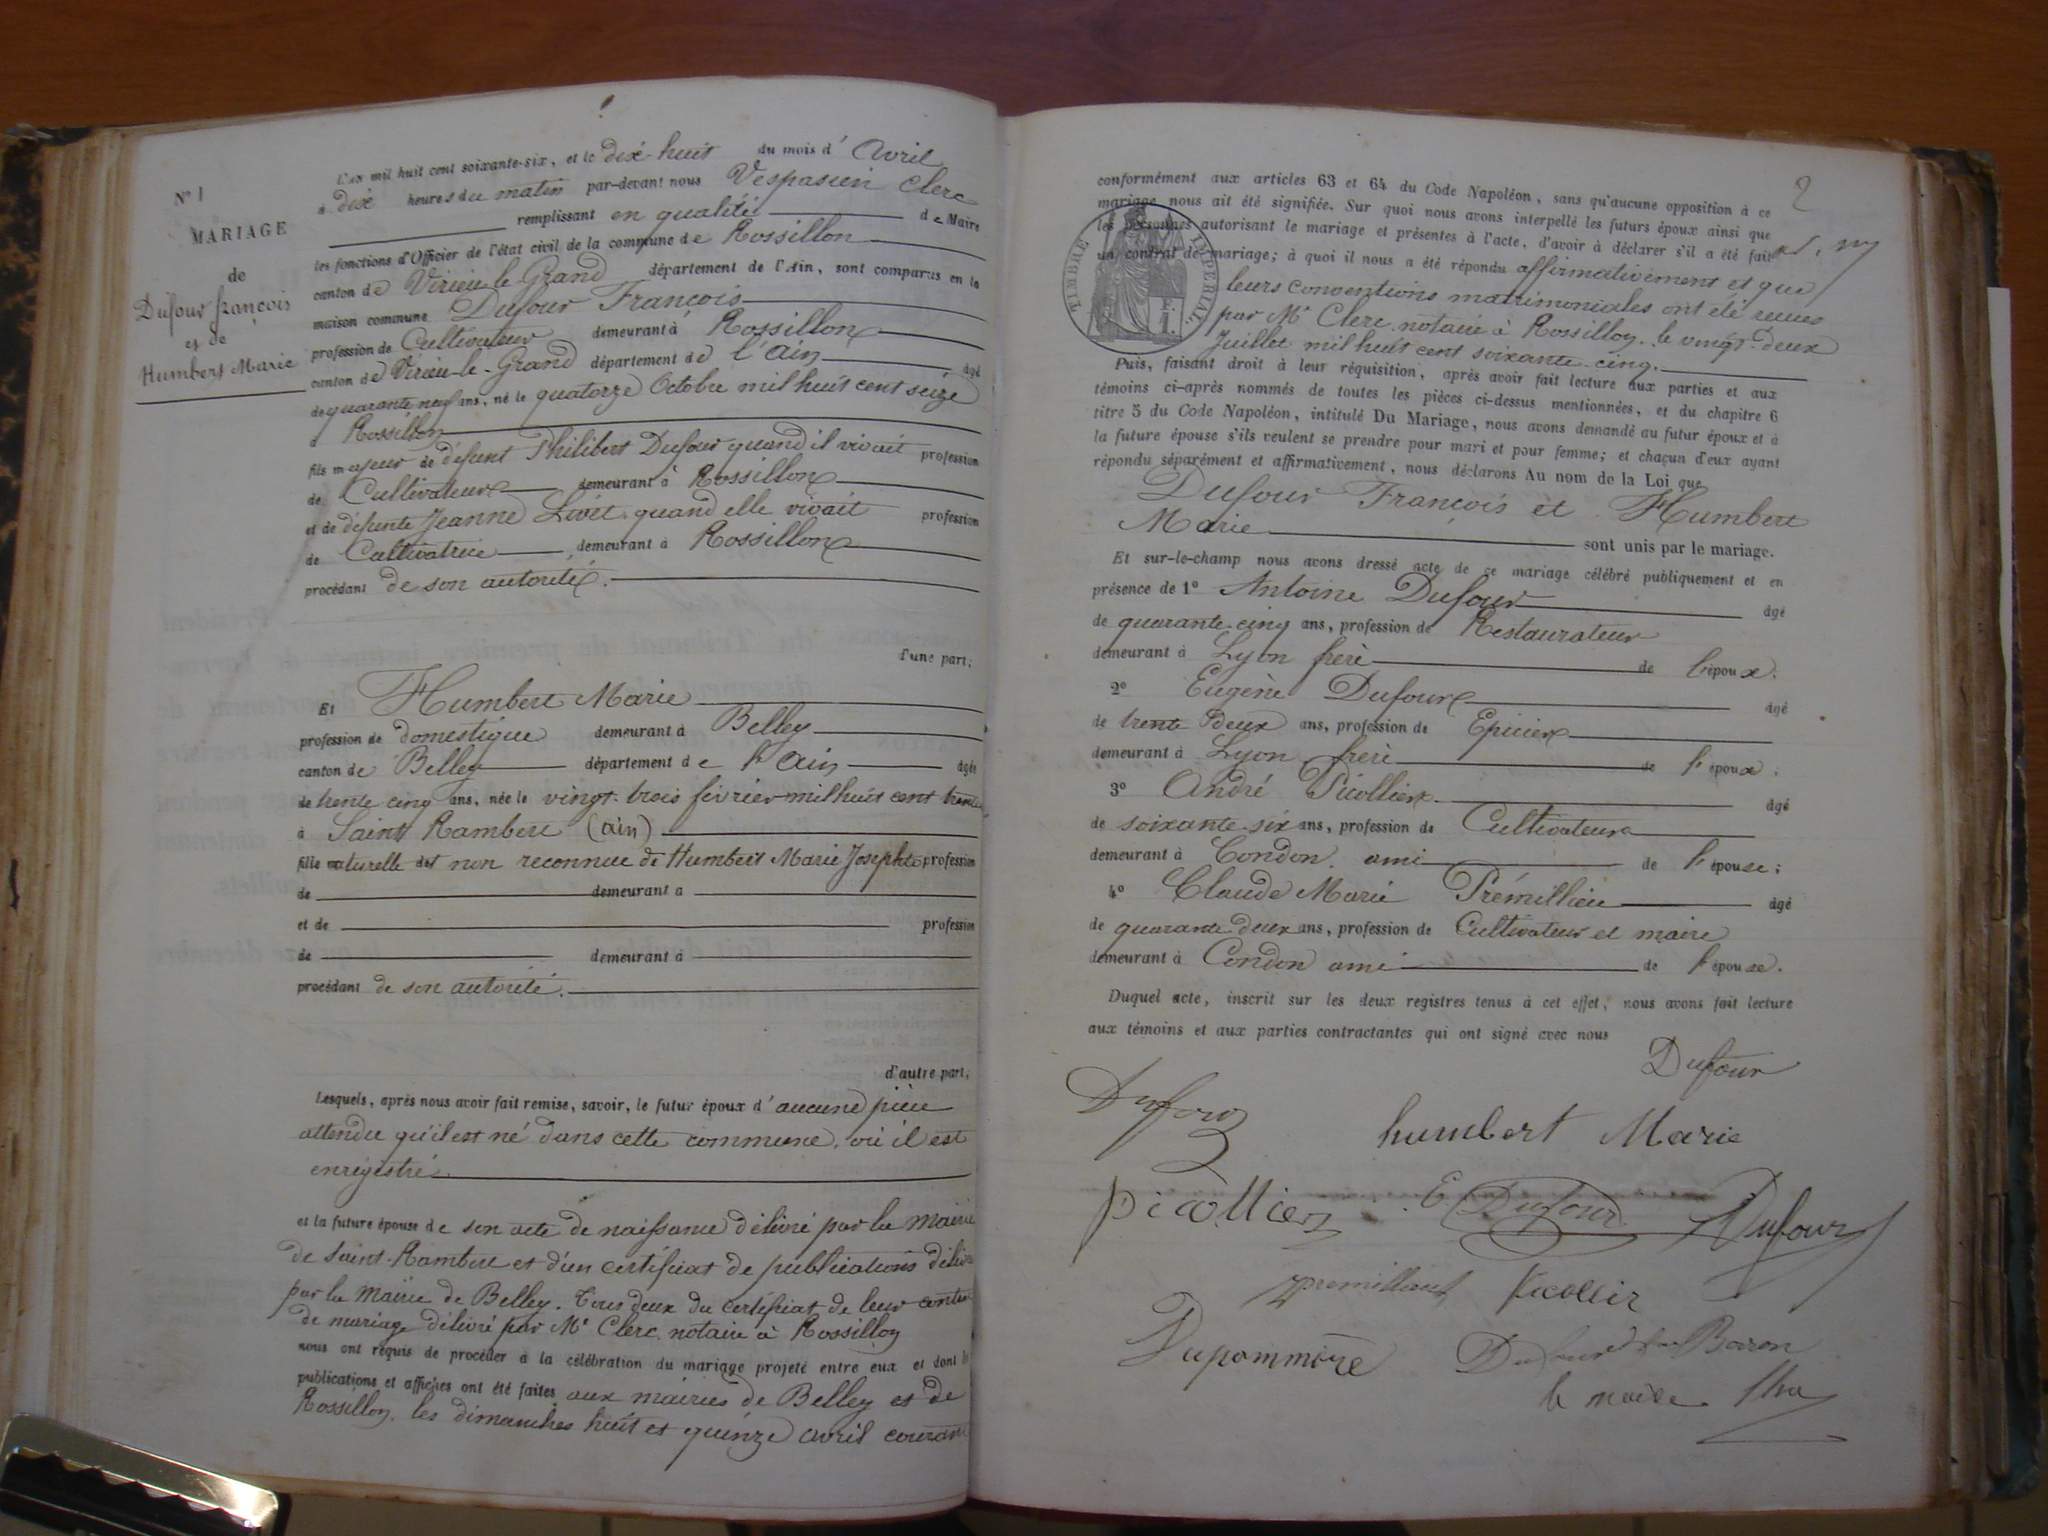 N° 1
MARIAGE
de
Dufour françois
et de
Humbert Marie
L'an mil huit cent soixante-six, et le dix-huit du mois d' Avril
à dix heures du matin par-devant nous Vespasien Clerc
remplissant en qualité de Maire
les fonctions d'Officier de l'état civil de la commune de Rossillon
canton de Virieu-le-Grand département de l'Ain, sont comparus en la
maison commune Dufour François
profession de Cultivateur demeurant à Rossillon
canton de Virieu-le-Grand département de l'Ain âgé
de quarante neuf ans, né le quatorze Octobre mil huit cent seize
à Rossillon
fils majeur de défunt Philibert Dufour quand il vivait profession
de Cultivateur demeurant à Rossillon
et de défunte Jeanne Livet quand elle vivait profession
de Cultivatrice demeurant à Rossillon
procédant de son autorité.
d'une part;
Et Humbert Marie
profession de domestique demeurant à Belley
canton de Belley département de l'Ain âgée
de trente cinq ans, née le vingt-trois février mil huit cent trente
à Saint Rambert (ain)
fille naturelle et non reconnue de Humbert Marie Josephte profession
de demeurant à
et de profession
de demeurant à
procédant de son autorité.
d'autre part;
Lesquels, après nous avoir fait remise, savoir, le futur époux d' aucune pièce
attendu qu'il est né dans cette commune, où il est
enregistré
et la future épouse de son acte de naissance délivré par la mairie
de Saint-Rambert et d'un certificat de publications délivré
par la Mairie de Belley. Tous deux du certificat de leur contrat
de mariage délivré par Me Clerc, notaire à Rossillon
nous ont requis de procéder à la célébration du mariage projeté entre eux et dont les
publications et affiches ont été faites aux mairies de Belley et de
Rossillon, les dimanches huit et quinze avril courant
2
conformément aux articles 63 et 64 du Code Napoléon, sans qu'aucune opposition à ce
mariage nous ait été signifiée. Sur quoi nous avons interpellé les futurs époux ainsi que
les personnes autorisant le mariage et présentes à l'acte, d'avoir à déclarer s'il a été fait
un contrat de mariage; à quoi il nous a été répondu affirmativement et que
leurs conventions matrimoniales ont été reçues
par Me Clerc, notaire à Rossillon, le vingt-deux
Juillet mil huit cent soixante-cinq.
TIMBRE IMPERIAL
Puis, faisant droit à leur réquisition, après avoir fait lecture aux parties et aux
témoins ci-après nommés de toutes les pièces ci-dessus mentionnées, et du chapitre 6
titre 5 du Code Napoléon, intitulé Du Mariage, nous avons demandé au futur époux et à
la future épouse s'ils veulent se prendre pour mari et pour femme; et chacun d'eux ayant
répondu séparément et affirmativement, nous déclarons Au nom de la Loi que
Dufour François et Humbert
Marie sont unis par le mariage.
Et sur-le-champ nous avons dressé acte de ce mariage célébré publiquement et en
présence de 1° Antoine Dufour âgé
de quarante-cinq ans, profession de Restaurateur
demeurant à Lyon frère de l'époux.
2° Eugène Dufour âgé
de trente deux ans, profession de Epicier
demeurant à Lyon frère de l'époux.
3° André Picollier âgé
de soixante-six ans, profession de Cultivateur
demeurant à Condon ami de l'épouse;
4° Claude Marie Prémillieu âgé
de quarante-deux ans, profession de Cultivateur et maire
demeurant à Condon ami de l'épouse.
Duquel acte, inscrit sur les deux registres tenus à cet effet, nous avons fait lecture
aux témoins et aux parties contractantes qui ont signé avec nous
Dufour
Dufour
humbert Marie
picollier
E Dufour
Dufour
premillieu
Picollier
Dupommère
Baron
le maire